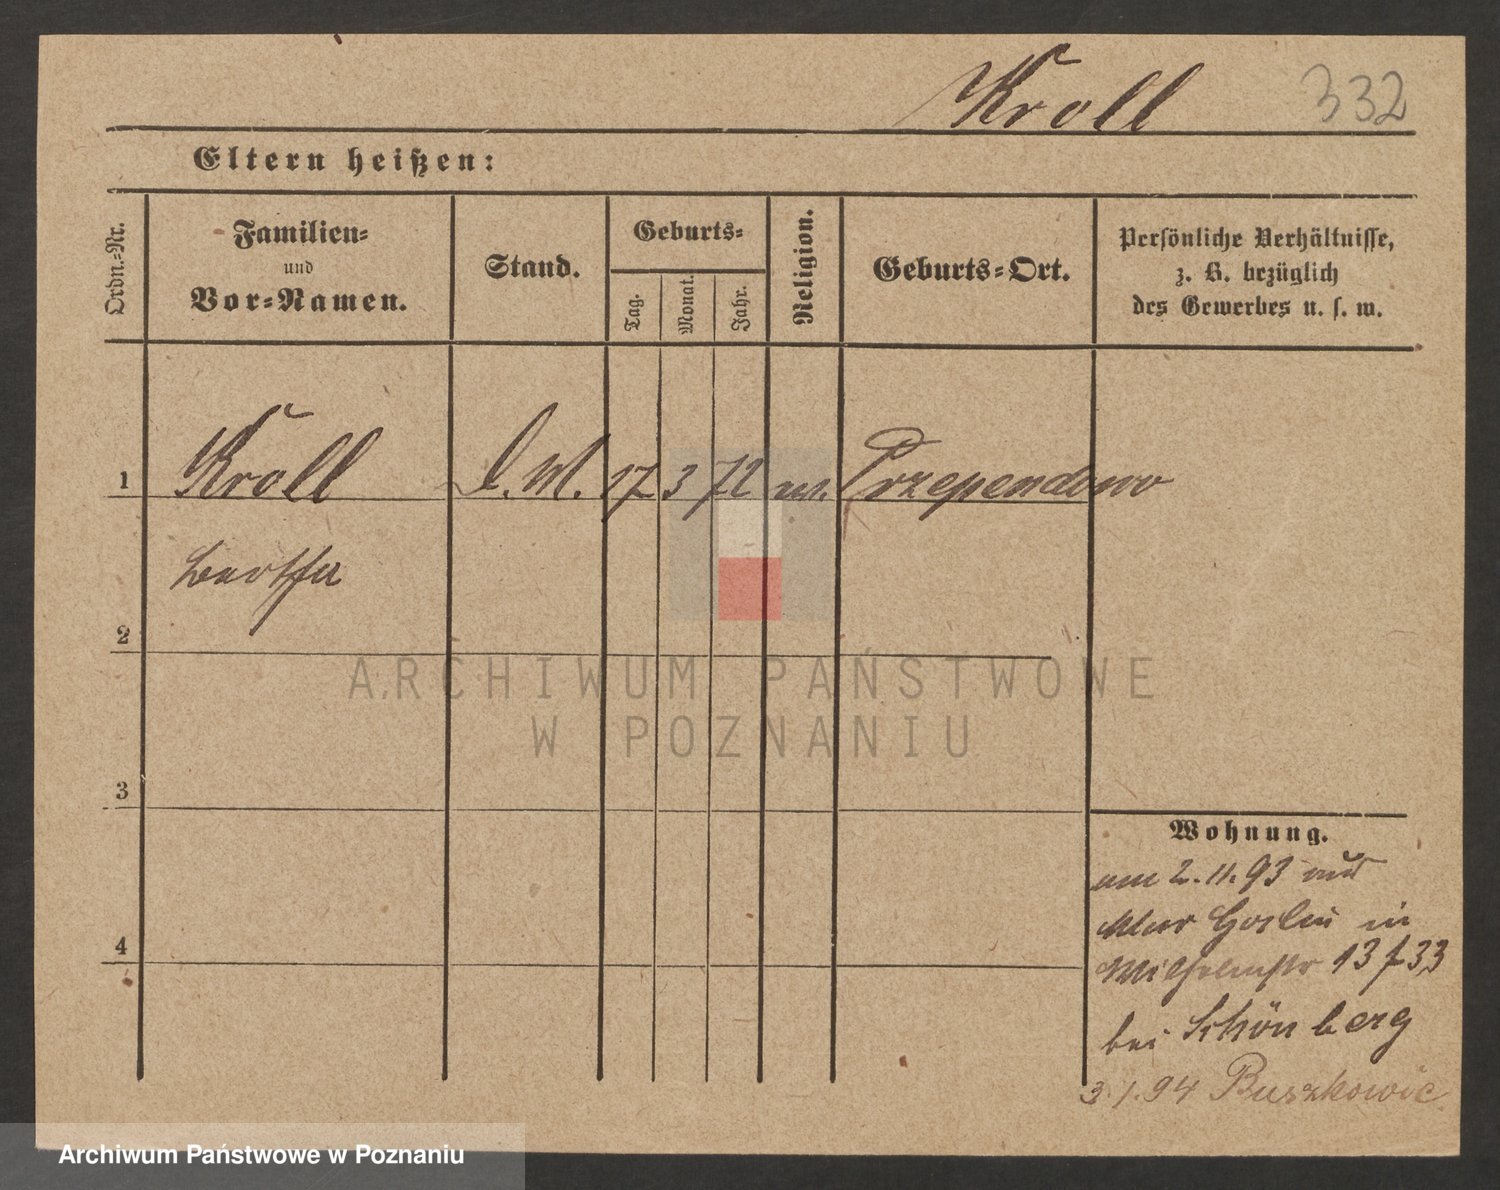 Kroll 332
Eltern heißen:
Ordn.-Nr.
Familien-
und
Vor-Namen.
Stand.
Geburts-
Tag.
Monat.
Jahr.
Religion.
Geburts-Ort.
Persönliche Verhältnisse,
z. B. bezüglich
des Gewerbes u. s. w.
1 Kroll D. M. 17 3 72 Przependowo
Bertha
2
3
4
Wohnung.
am 2.11.93 aus
Mur Goslin in
Wilhelmstr 13 33
bei Schönberg
3.1.94
ARCHIWUM PAŃSTWOWE
W POZNANIU
Archiwum Państwowe w Poznaniu